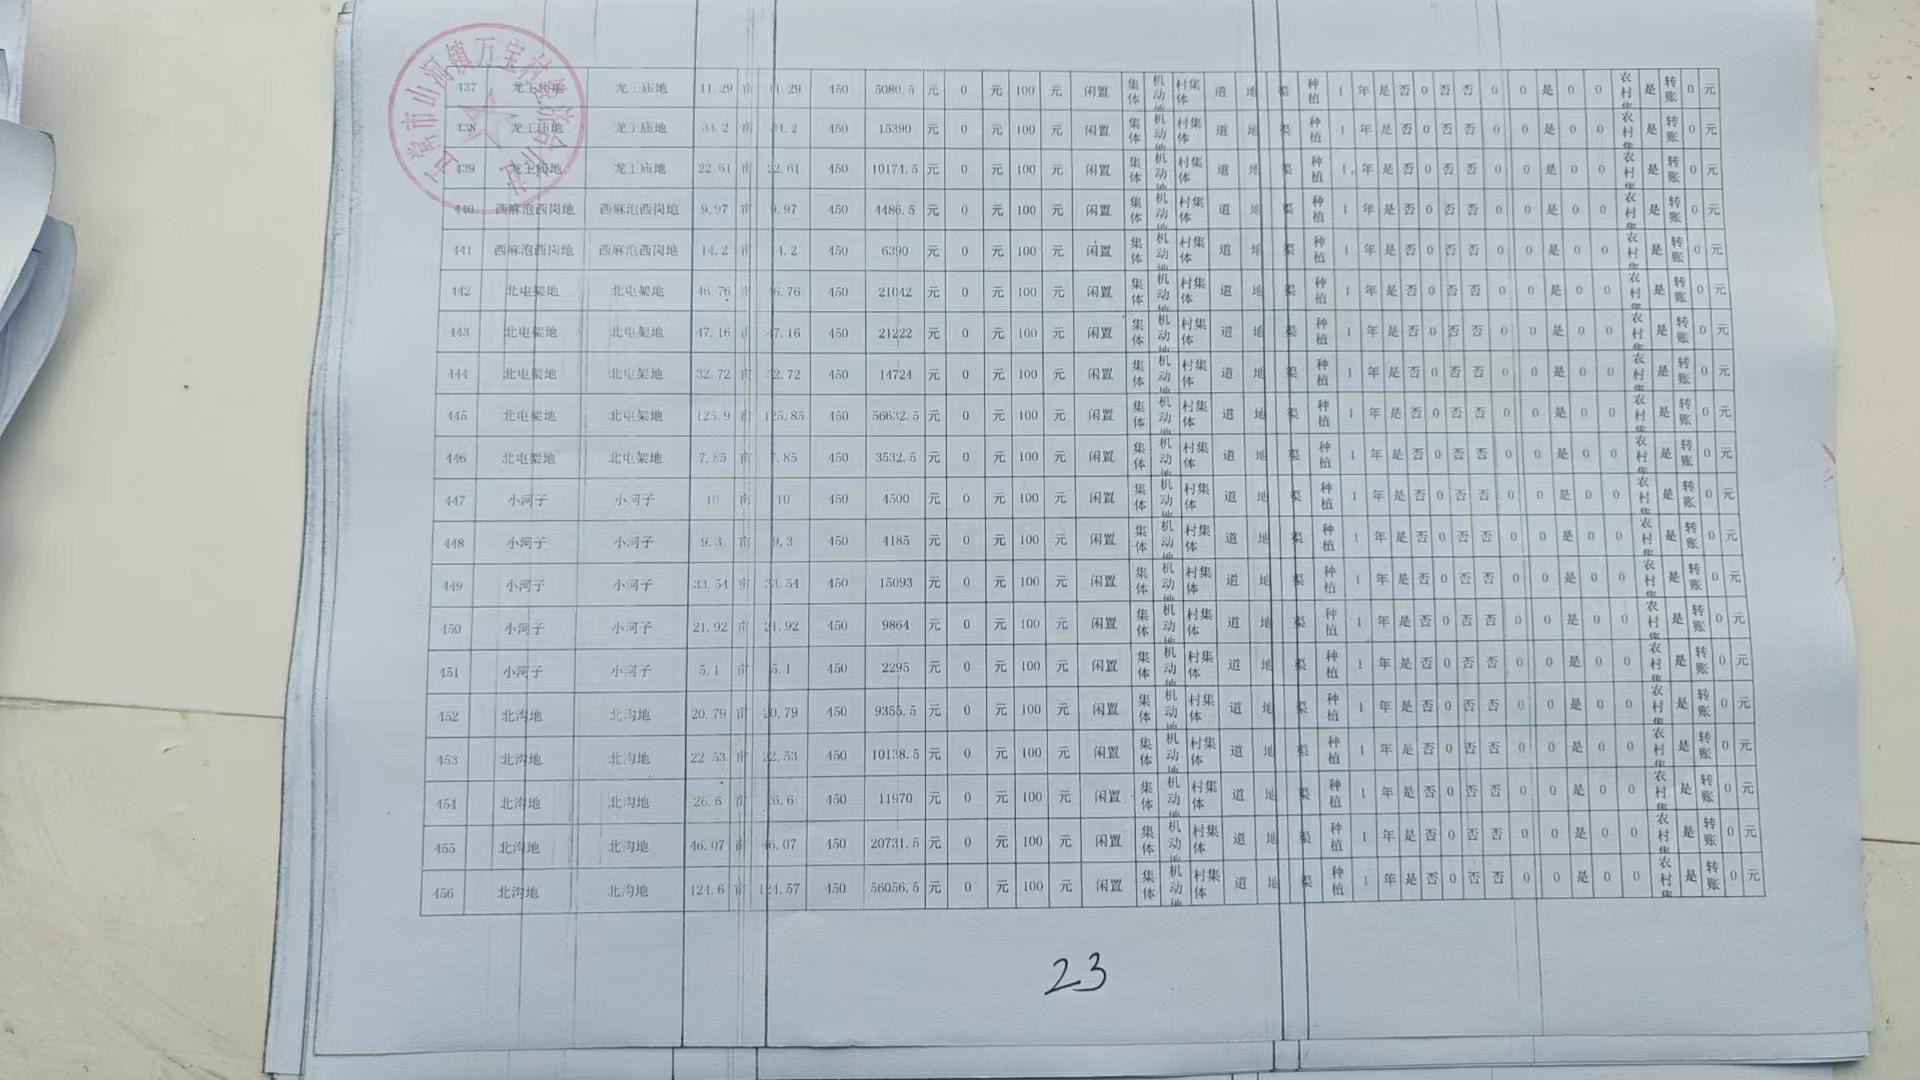 五常市山河镇万宝村经济合作社
437 龙王庙地 龙王庙地 11.29 亩 11.29 450 5080.5 元 0 元 100 元 闲置 集体 机动地 村集体 道 地 渠 种植 1 年 是 否 0 否 否 0 0 是 0 0 农村集 是 转账 0 元
438 龙王庙地 龙王庙地 34.2 亩 34.2 450 15390 元 0 元 100 元 闲置 集体 机动地 村集体 道 地 渠 种植 1 年 是 否 0 否 否 0 0 是 0 0 农村集 是 转账 0 元
439 龙王庙地 龙王庙地 22.61 亩 22.61 450 10174.5 元 0 元 100 元 闲置 集体 机动地 村集体 道 地 渠 种植 1 年 是 否 0 否 否 0 0 是 0 0 农村集 是 转账 0 元
440 西麻泡西岗地 西麻泡西岗地 9.97 亩 9.97 450 4486.5 元 0 元 100 元 闲置 集体 机动地 村集体 道 地 渠 种植 1 年 是 否 0 否 否 0 0 是 0 0 农村集 是 转账 0 元
441 西麻泡西岗地 西麻泡西岗地 14.2 亩 14.2 450 6390 元 0 元 100 元 闲置 集体 机动地 村集体 道 地 渠 种植 1 年 是 否 0 否 否 0 0 是 0 0 农村集 是 转账 0 元
442 北屯架地 北屯架地 46.76 亩 46.76 450 21042 元 0 元 100 元 闲置 集体 机动地 村集体 道 地 渠 种植 1 年 是 否 0 否 否 0 0 是 0 0 农村集 是 转账 0 元
443 北屯架地 北屯架地 47.16 亩 47.16 450 21222 元 0 元 100 元 闲置 集体 机动地 村集体 道 地 渠 种植 1 年 是 否 0 否 否 0 0 是 0 0 农村集 是 转账 0 元
444 北屯架地 北屯架地 32.72 亩 32.72 450 14724 元 0 元 100 元 闲置 集体 机动地 村集体 道 地 渠 种植 1 年 是 否 0 否 否 0 0 是 0 0 农村集 是 转账 0 元
445 北屯架地 北屯架地 125.9 亩 125.85 450 56632.5 元 0 元 100 元 闲置 集体 机动地 村集体 道 地 渠 种植 1 年 是 否 0 否 否 0 0 是 0 0 农村集 是 转账 0 元
446 北屯架地 北屯架地 7.85 亩 7.85 450 3532.5 元 0 元 100 元 闲置 集体 机动地 村集体 道 地 渠 种植 1 年 是 否 0 否 否 0 0 是 0 0 农村集 是 转账 0 元
447 小河子 小河子 10 亩 10 450 4500 元 0 元 100 元 闲置 集体 机动地 村集体 道 地 渠 种植 1 年 是 否 0 否 否 0 0 是 0 0 农村集 是 转账 0 元
448 小河子 小河子 9.3 亩 9.3 450 4185 元 0 元 100 元 闲置 集体 机动地 村集体 道 地 渠 种植 1 年 是 否 0 否 否 0 0 是 0 0 农村集 是 转账 0 元
449 小河子 小河子 33.54 亩 33.54 450 15093 元 0 元 100 元 闲置 集体 机动地 村集体 道 地 渠 种植 1 年 是 否 0 否 否 0 0 是 0 0 农村集 是 转账 0 元
450 小河子 小河子 21.92 亩 21.92 450 9864 元 0 元 100 元 闲置 集体 机动地 村集体 道 地 渠 种植 1 年 是 否 0 否 否 0 0 是 0 0 农村集 是 转账 0 元
451 小河子 小河子 5.1 亩 5.1 450 2295 元 0 元 100 元 闲置 集体 机动地 村集体 道 地 渠 种植 1 年 是 否 0 否 否 0 0 是 0 0 农村集 是 转账 0 元
452 北沟地 北沟地 20.79 亩 20.79 450 9355.5 元 0 元 100 元 闲置 集体 机动地 村集体 道 地 渠 种植 1 年 是 否 0 否 否 0 0 是 0 0 农村集 是 转账 0 元
453 北沟地 北沟地 22.53 亩 22.53 450 10138.5 元 0 元 100 元 闲置 集体 机动地 村集体 道 地 渠 种植 1 年 是 否 0 否 否 0 0 是 0 0 农村集 是 转账 0 元
454 北沟地 北沟地 26.6 亩 26.6 450 11970 元 0 元 100 元 闲置 集体 机动地 村集体 道 地 渠 种植 1 年 是 否 0 否 否 0 0 是 0 0 农村集 是 转账 0 元
455 北沟地 北沟地 46.07 亩 46.07 450 20731.5 元 0 元 100 元 闲置 集体 机动地 村集体 道 地 渠 种植 1 年 是 否 0 否 否 0 0 是 0 0 农村集 是 转账 0 元
456 北沟地 北沟地 124.6 亩 124.57 450 56056.5 元 0 元 100 元 闲置 集体 机动地 村集体 道 地 渠 种植 1 年 是 否 0 否 否 0 0 是 0 0 农村集 是 转账 0 元
23